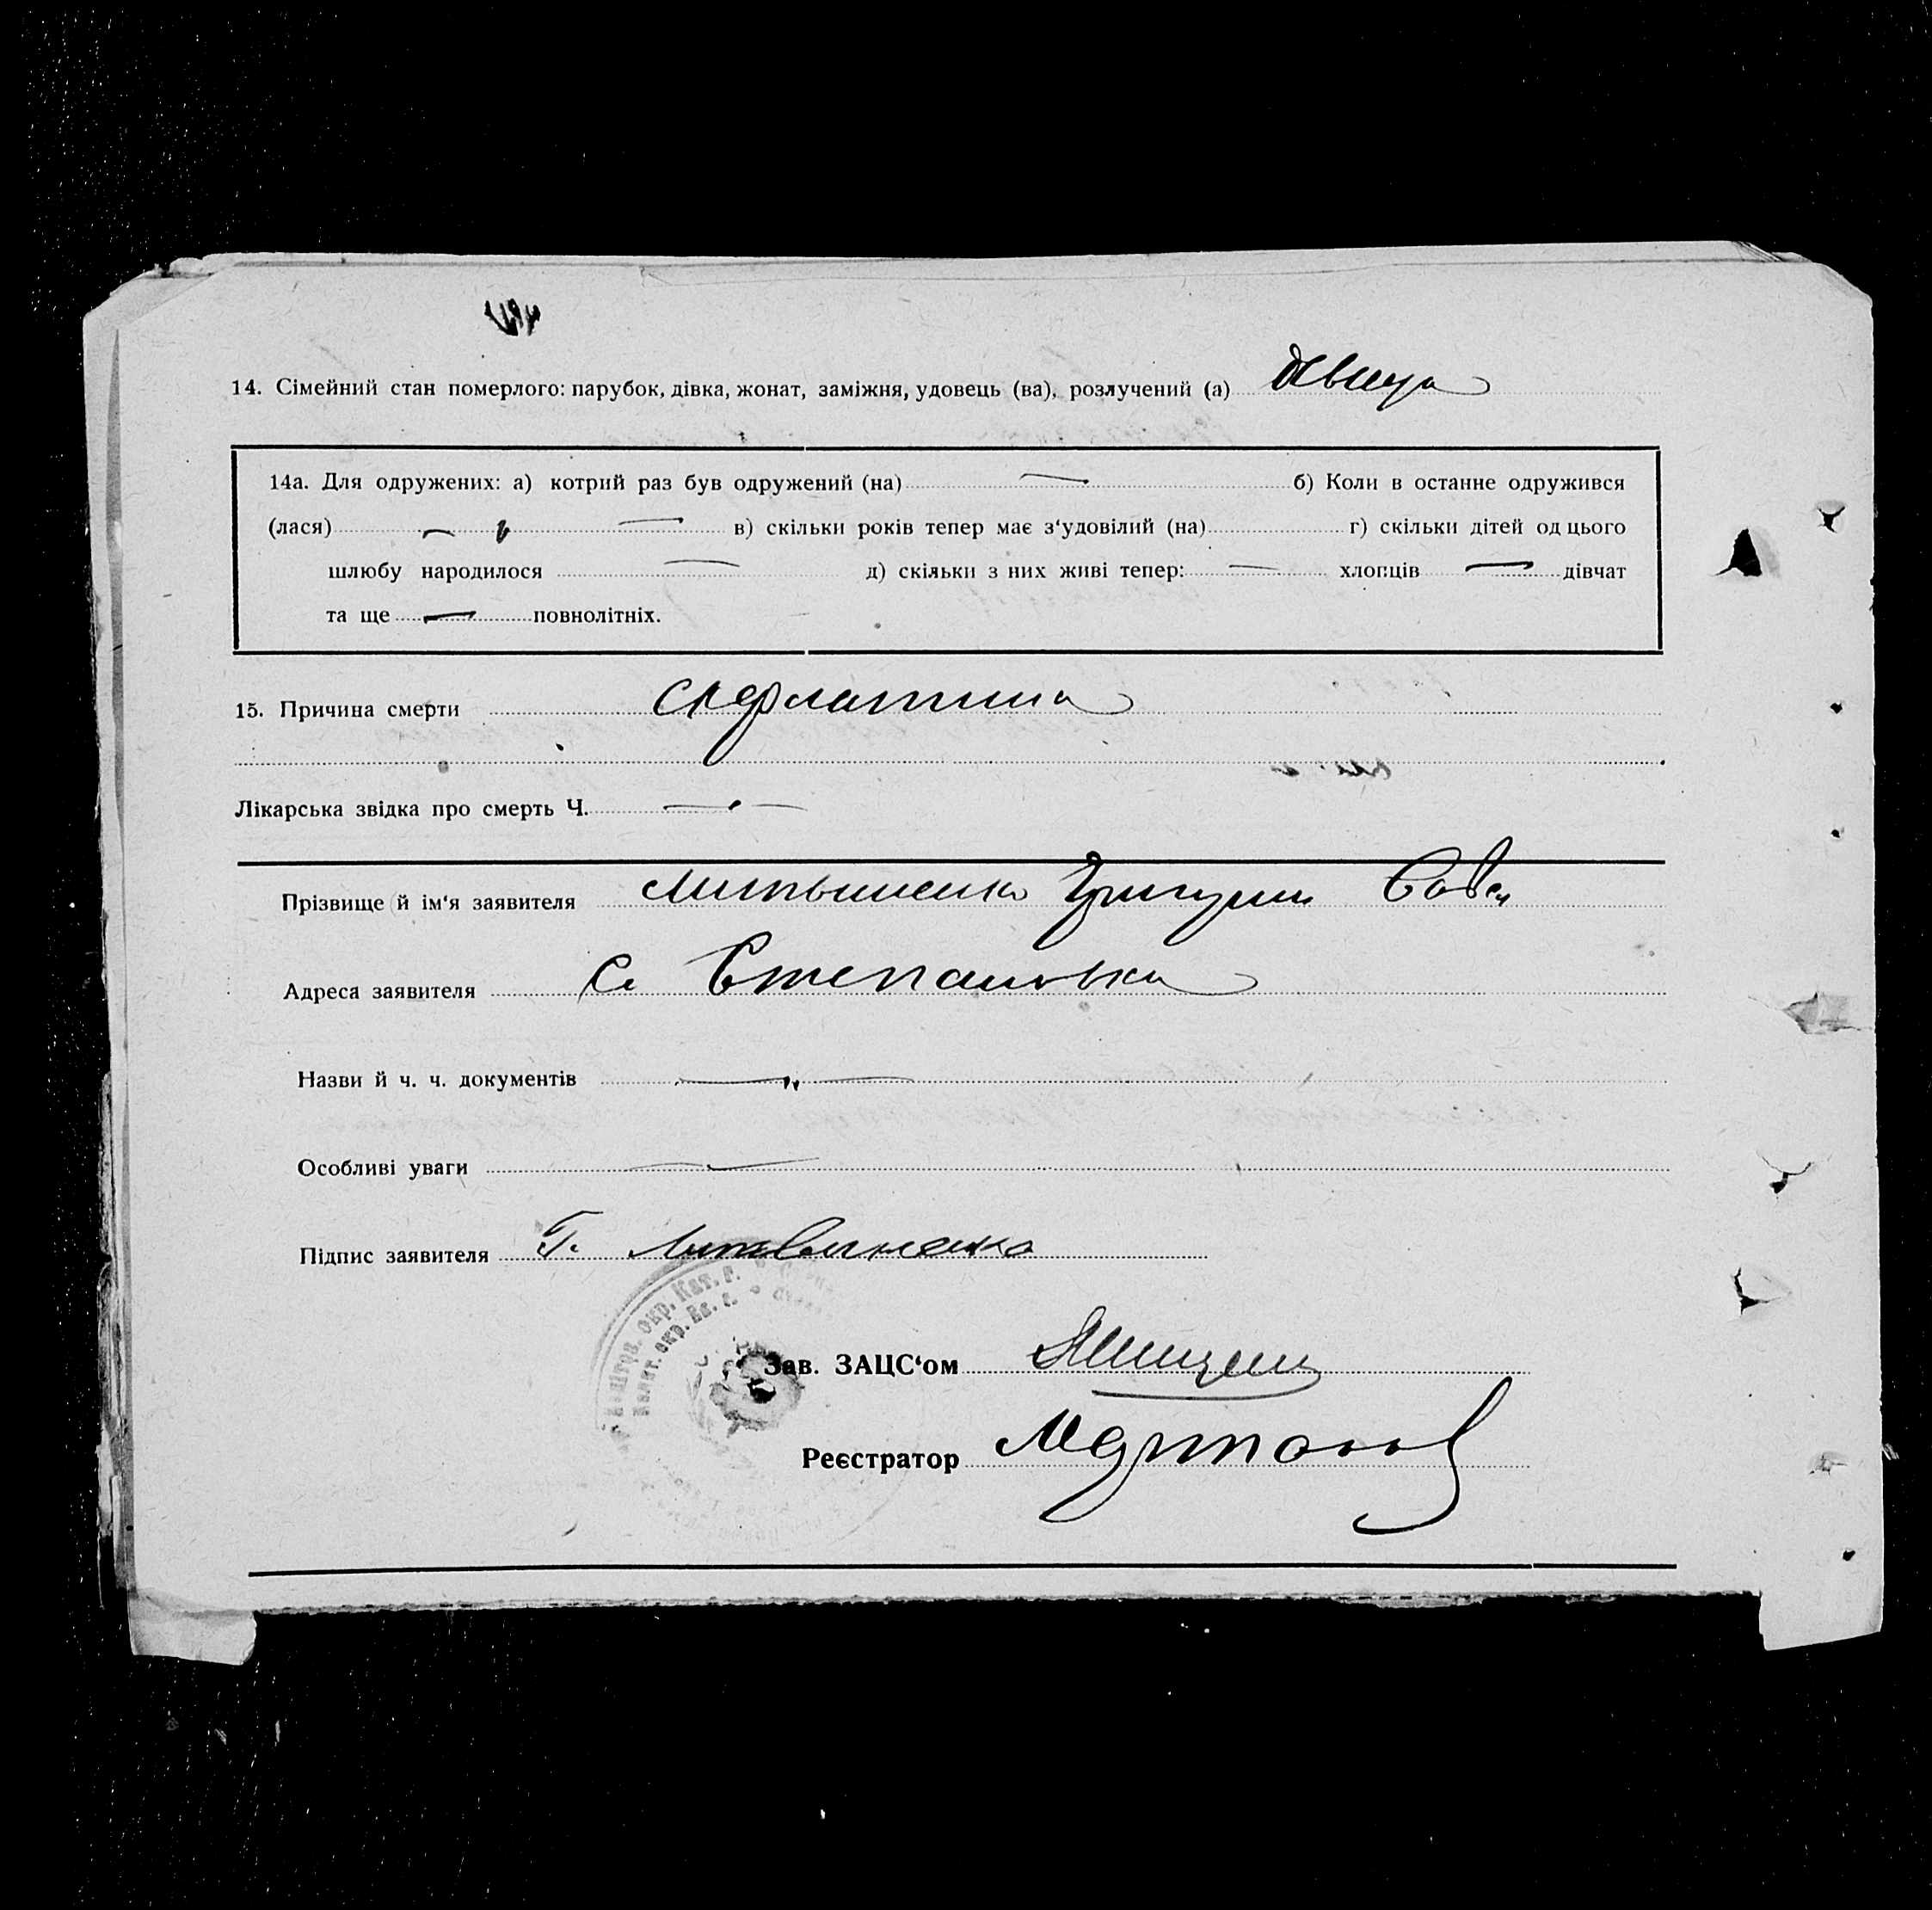 14. Сімейний стан померлого: парубок, дівка, жонат, заміжня, удовець (ва), розлучений (а) дівица
14а. Для одружених: а) котрий раз був одружений (на) — б) Коли в останнє одружився
(лася) — — в) скільки років тепер має з‘удовілий (на) г) скільки дітей од цього
шлюбу народилося — д) скільки з них живі тепер: — хлопців — дівчат
та ще — повнолітніх.
15. Причина смерти скерлатина
Лікарська звідка про смерть Ч. —
Прізвище й ім‘я заявителя Литвиненко Григорий Савы
Адреса заявителя С. Степановка
Назви й ч. ч. документів — „ —
Особливі уваги —
Підпис заявителя Г. Литвиненко
окр. Кат. г.
окр. Ек. г.
Зав. ЗАЦС‘ом
Реєстратор Мартонов